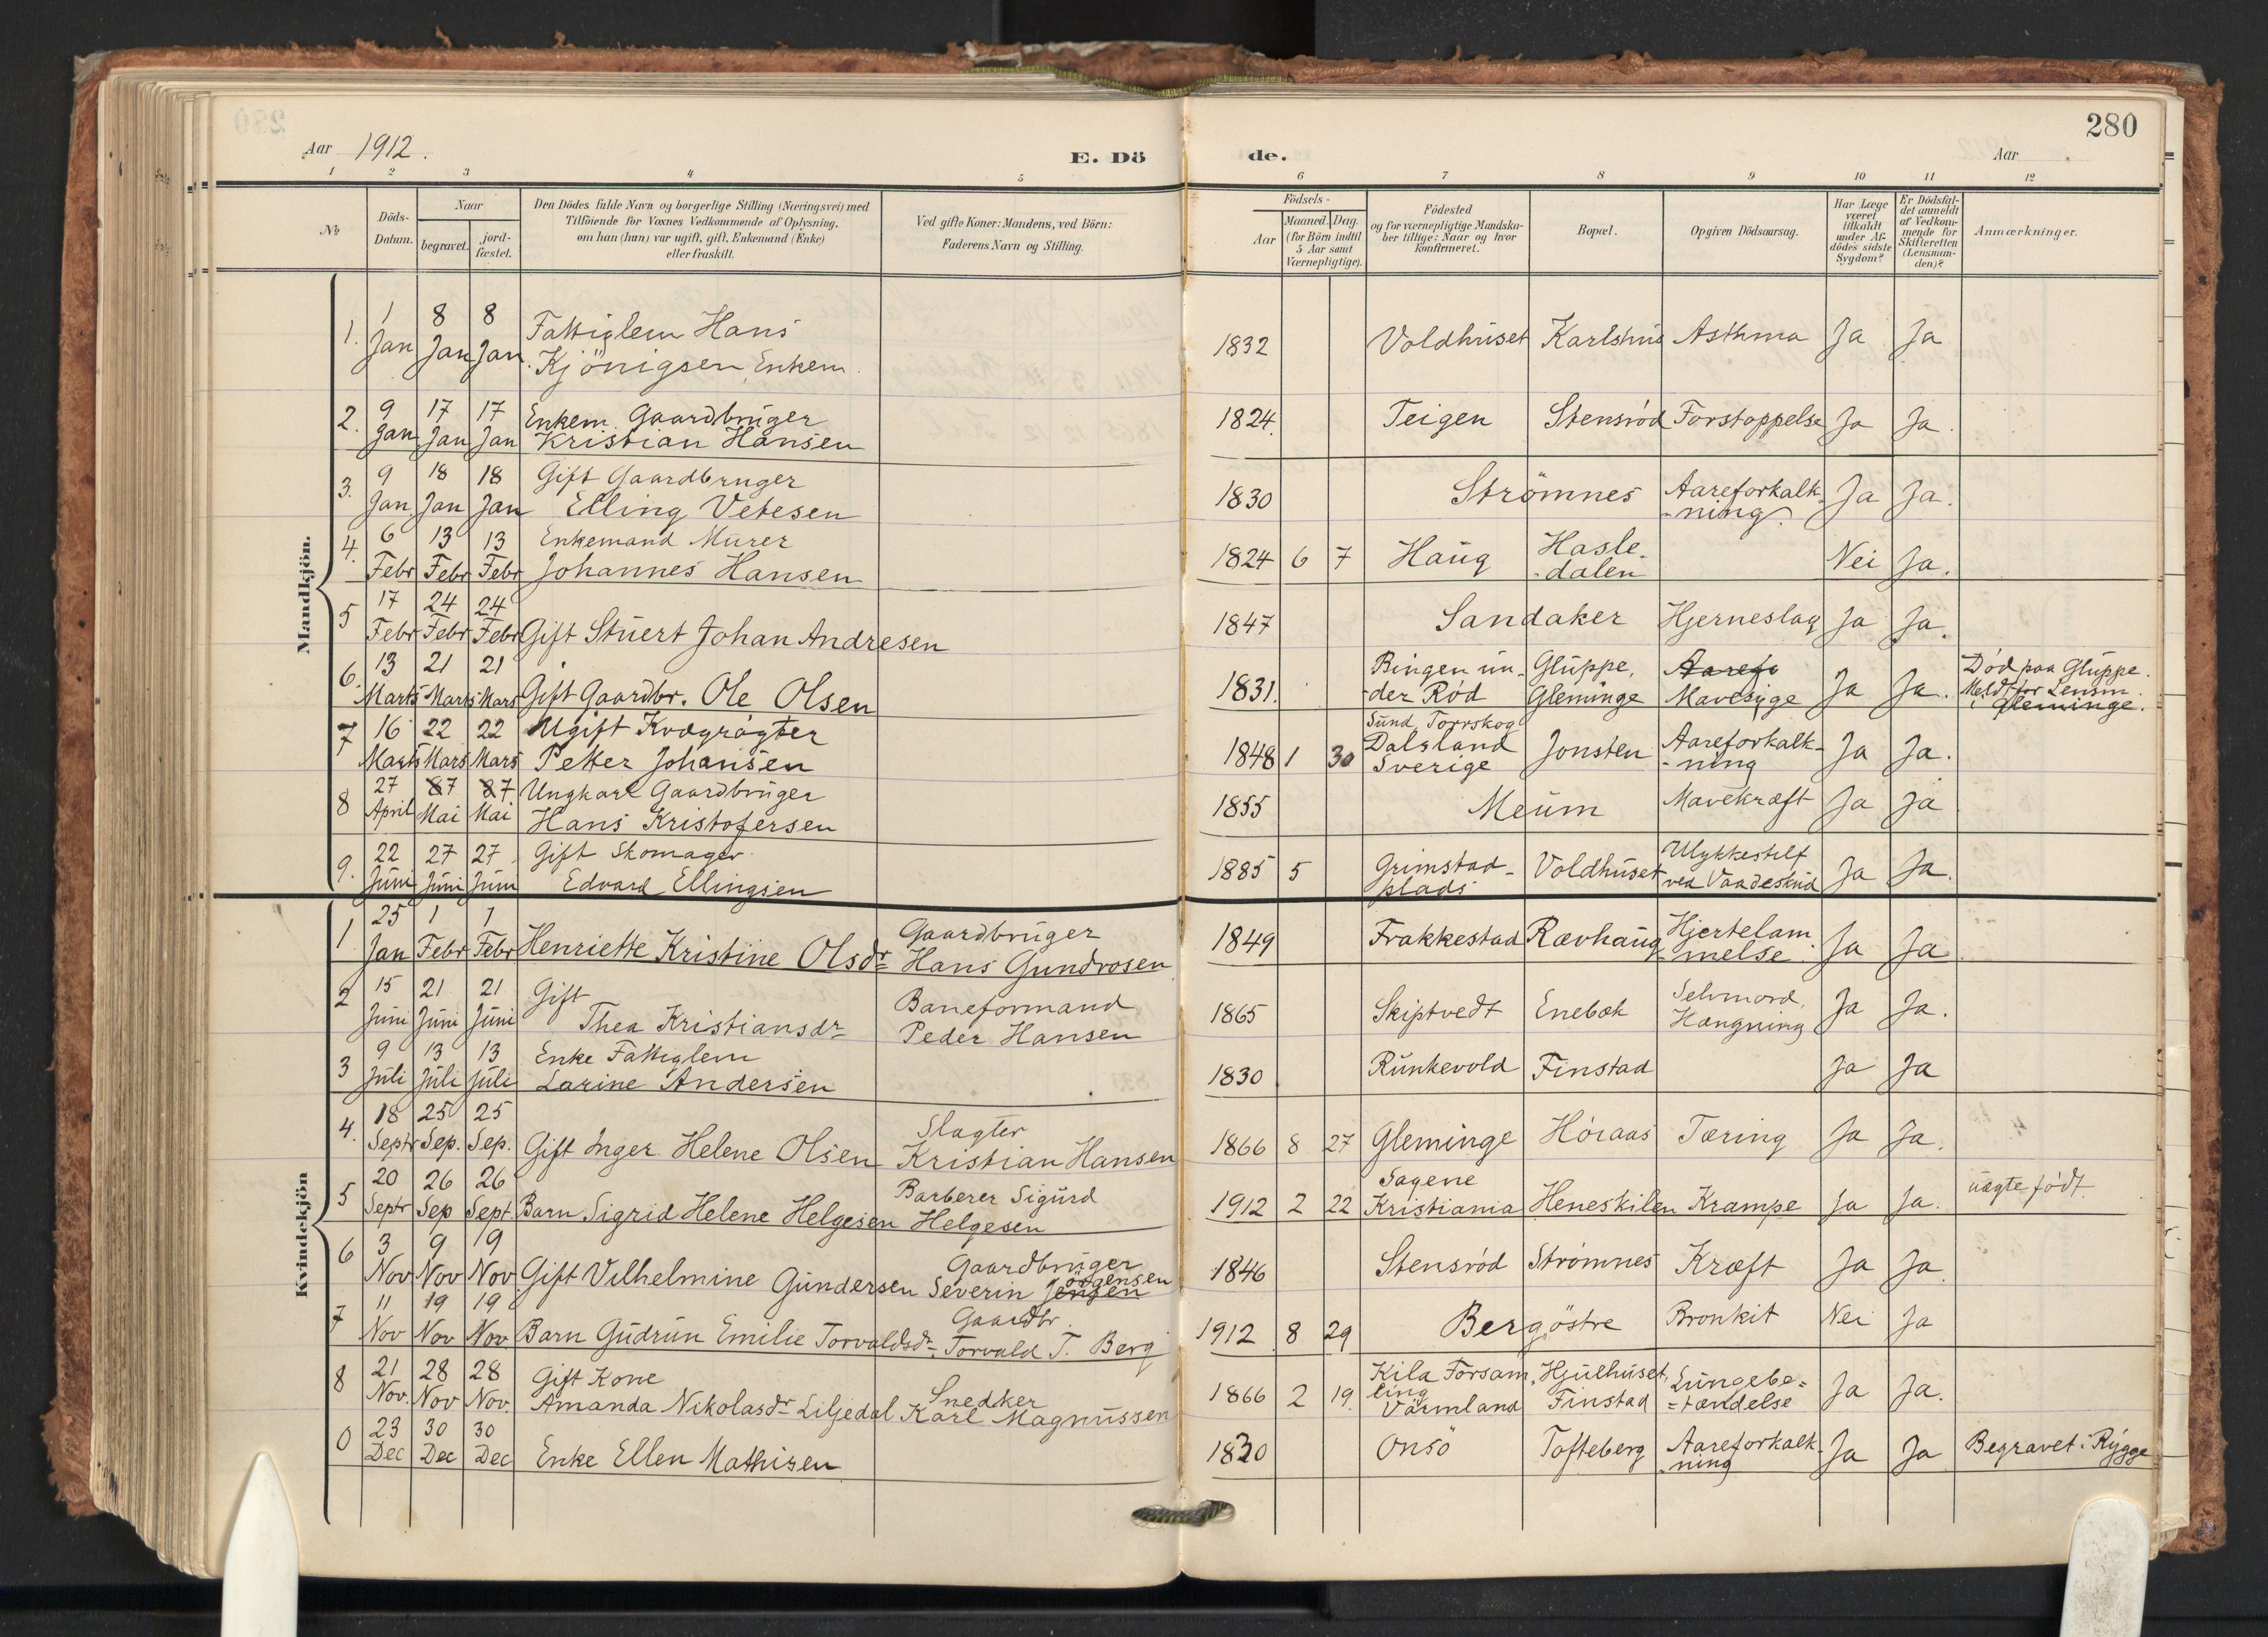 280
Aar 1912.
E. Dö
de.
Aar
1 2 3 4 5 6 7 8 9 10 11 12
№
Döds-
Datum.
Naar
begravet.
jord-
fæstet.
Den Dödes fulde Navn og borgerlige Stilling (Næringsvei) med
Tilföiende for Voxnes Vedkommende af Oplysning,
om han (hun) var ugift, gift, Enkemand (Enke)
eller fraskilt.
Ved gifte Koner: Mandens, ved Börn:
Faderens Navn og Stilling.
Födsels-
Aar
Maaned. Dag.
(for Börn indtil
5 Aar samt
Værnepligtige).
Födested
og for værnepligtige Mandska-
ber tillige: Naar og hvor
konfirmeret.
Bopæl.
Opgiven Dödsaarsag.
Har Læge
været
tilkaldt
under Af-
dödes sidste
Sygdom?
Er Dödsfal-
det anmeldt
af Vedkom-
mende for
Skifteretten
(Lensman-
den)?
Anmærkninger.
Mandkjön.
1. 1 Jan 8 Jan 8 Jan Fattiglem Hans
Kjönigsen, Enkem. 1832 Voldhuset Karlshus Asthma Ja Ja
2. 9 Jan 17 Jan 17 Jan Enkem. Gaardbruger
Kristian Hansen 1824. Teigen Stensröd Forstoppelse Ja Ja.
3. 9 Jan. 18 Jan 18 Jan Gift Gaardbruger
Elling Vetesen 1830 Strömnes Aareforkalk-
ning. Ja Ja.
4. 6 Febr 13 Febr 13 Febr Enkemand Murer
Johannes Hansen 1824 6 7 Haug Hasle-
dalen Nei Ja.
5 17 Febr 24 Febr 24 Febr Gift Stuert Johan Andresen 1847 Sandaker Hjerneslag Ja Ja.
6. 13 Marts 21 Marts 21 Mars Gift Gaardbr. Ole Olsen 1831. Ringen un-
der Röd Gluppe,
Gleminge Aarefo
Mavesyge Ja Ja. Död paa Gluppe.
Meldt for Lensm.
i Gleminge.
7 16 Marts 22 Mars 22 Mars Ugift Kvægrögter
Petter Johansen 1848 1 30 Sund, Torrskog
Dalsland
Sverige Jonsten Aareforkalk-
ning Ja Ja.
8 27 April 87 Mai 87 Mai Ungkarl Gaardbruger
Hans Kristofersen 1855 Meum Mavekræft Ja Ja
9. 22 Juni 27 Juni 27 Juni Gift Skomager
Edvard Ellingsen 1885 5 Grimstad-
plads Voldhuset Ulykkestilf
ved Vaadeskud Ja Ja.
Kvindekjön
1 25 Jan 1 Febr 1 Febr Henriette Kristine Olsdr Gaardbruger
Hans Gundrosen 1849 Frakkestad Rævhaug Hjertelam
melse. Ja Ja
2 15 Juni 21 Juni 21 Juni Gift
Thea Kristiansdr Baneformand
Peder Hansen 1865 Skiptvedt Enebæk Selvmord,
Hængning Ja Ja.
3 9 Juli 13 Juli 13 Juli Enke Fattiglem
Larine Andersen 1830 Runkevold Finstad Ja Ja
4. 18 Septr 25 Sep. 25 Sep. Gift Inger Helene Olsen Slagter
Kristian Hansen 1866 8 27 Gleminge Höraas Tæring Ja Ja.
5 20 Septr 26 Sep 26 Sept Barn Sigrid Helene Helgesen Barberer Sigurd
Helgesen 1912 2 22 Sagene
Kristiania Heneskilen Krampe Ja Ja. uægte född.
6 3 Nov 9 Nov 19 Nov Gift Vilhelmine Gundersen Gaardbruger
Severin Jensen örgensen 1846 Stensröd Strömnes Kræft Ja Ja
7 11 Nov 19 Nov 19 Nov. Barn Gudrun Emilie Torvaldsdr. Gaardbr.
Torvald T. Berg 1912 8 29 Berg östre Bronkit Nei Ja
8 21 Nov. 28 Nov 28 Nov. Gift Kone
Amanda Nikolasdr Liljedal Snedker
Karl Magnussen 1866 2 19. Kila Forsam-
ling
Värmland Hjulhuset,
Finstad Lungebe=
=tændelse Ja Ja.
0 23 Dec 30 Dec 30 Dec Enke Ellen Mathisen 1830 Onsö Tofteberg Aareforkalk-
ning Ja Ja Begravet i Rygge